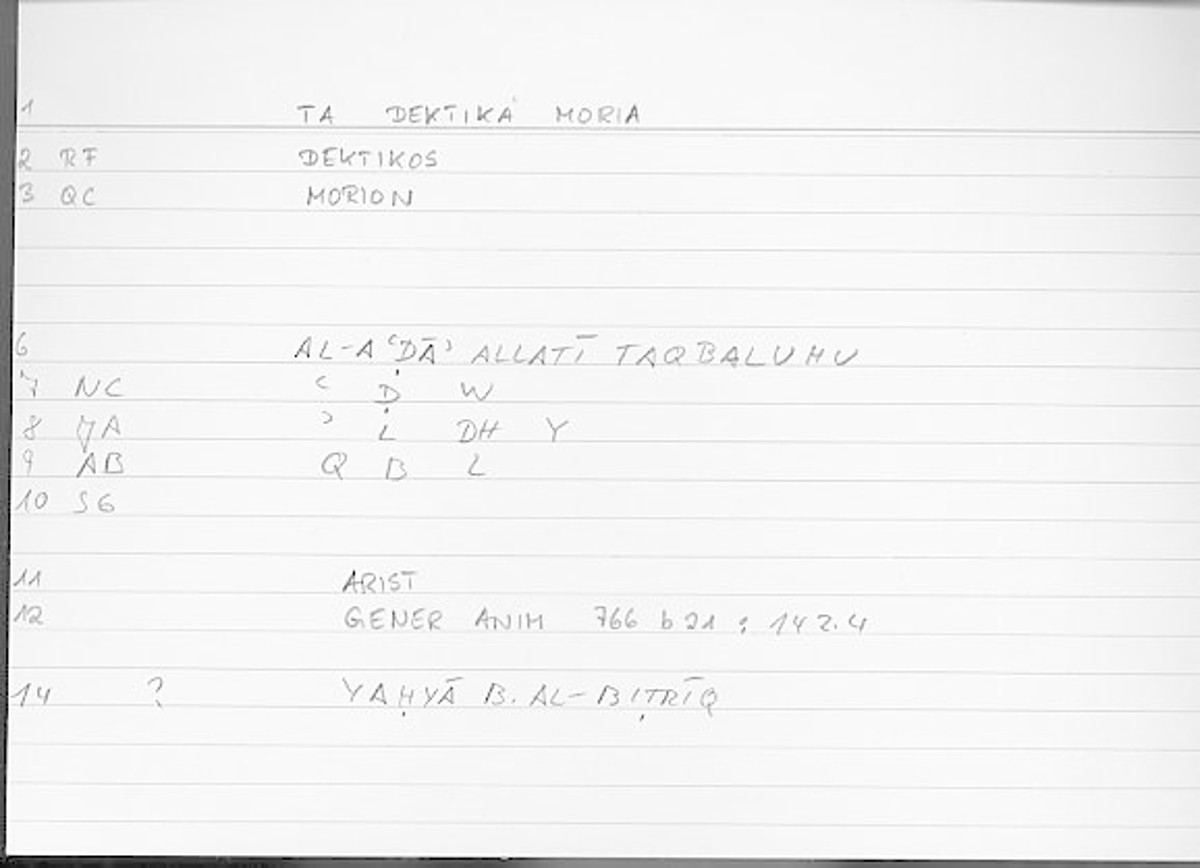 1 TA DEKTIKÁ MORIA
2 RF DEKTIKOS
3 QC MORION
6 AL-AʿḌĀʾ ALLATĪ TAQBALUHU
7 NC ʿ Ḍ W
8 JA ʾ L DH Y
9 AB Q B L
10 SG
11 ARIST
12 GENER ANIM 766 b 21 ; 142.4
14 ? YAḤYĀ B. AL-BIṬRĪQ